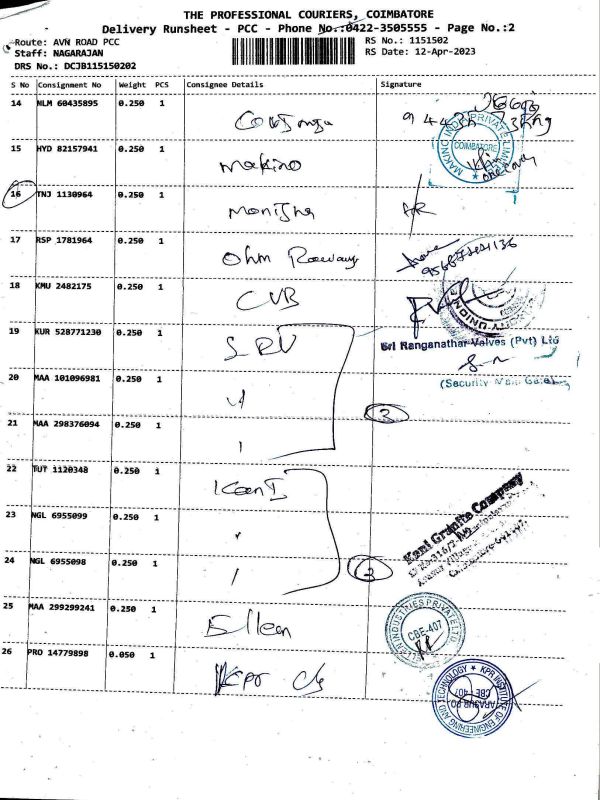 THE PROFESSIONAL COURIERS, COIMBATORE
Delivery Runsheet - PCC - Phone No.:0422-3505555 - Page No.:2
Route: AVN ROAD PCC
Staff: NAGARAJAN
DRS No.: DCJB115150202
RS No.: 1151502
RS Date: 12-Apr-2023
S No Consignment No Weight PCS Consignee Details Signature
14 NLM 60435895 0.250 1
15 HYD 82157941 0.250 1 Makino
MAKINO INDIA PRIVATE LIMITED
COIMBATORE
16 TNJ 1130964 0.250 1 Monisha
17 RSP 1781964 0.250 1 Ohm
18 KMU 2482175 0.250 1 CUB
19 KUR 528771230 0.250 1 SRV
Sri Ranganathar Valves (Pvt) Ltd
(Security Main Gate)
20 MAA 101096981 0.250 1 "
21 MAA 298376094 0.250 1 3
22 TUT 1120348 0.250 1
Kani Granite Company
23 NGL 6955099 0.250 1 "
24 NGL 6955098 0.250 1 3
25 MAA 299299241 0.250 1 Ellen
ELLEN INDUSTRIES PRIVATE LTD
CBE-407
26 PRO 14779898 0.050 1 Kpr
KPR INSTITUTE OF ENGINEERING AND TECHNOLOGY
ARASUR PO
CBE - 407